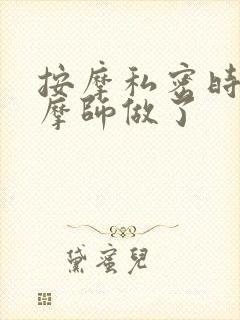 按摩私密時
摩師做了
黛蜜兒